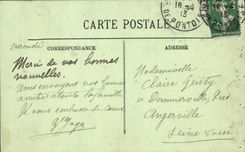 CARTE POSTALE
CORRESPONDANCE
ADRESSE
mercredi
Merci de vos bonnes
nouvelles.
Nous envoyons nos bonnes
amitiés à toute la famille
Je vous embrasse de cœur
Mademoiselle
Claire
à Dommerville, Près
Angerville
Seine
18 -4
13
DE PONTOI